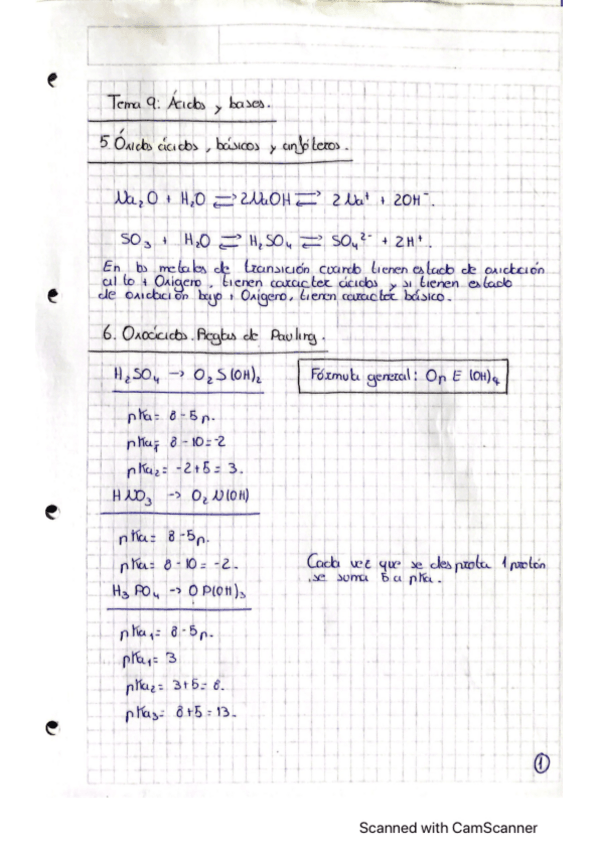 Tema 9: Ácidos y bases.
5 Óxidos ácidos, básicos y anfóteros.
Na₂O + H₂O ⇌ 2NaOH ⇌ 2Na⁺ + 2OH⁻.
SO₃ + H₂O ⇌ H₂SO₄ ⇌ SO₄²⁻ + 2H⁺.
En los metales de transición cuando tienen estado de oxidación
alto + Oxígeno, tienen caracter ácidos y si tienen estado
de oxidación bajo + Oxígeno, tienen caracter básico.
6. Oxoácidos. Reglas de Pauling.
H₂SO₄ → O₂S(OH)₂
Fórmula general: OpE(OH)q
pKa = 8-5p.
pKa₁= 8-10=-2
pKa₂= -2+5= 3.
HNO₃ → O₂N(OH)
pKa= 8-5p.
pKa= 8-10= -2.
Cada vez que se desprota 1 protón
se suma 5 a pKa.
H₃PO₄ → OP(OH)₃
pKa₁= 8-5p.
pKa₁= 3
pKa₂= 3+5= 8.
pKa₃= 8+5=13.
1
Scanned with CamScanner